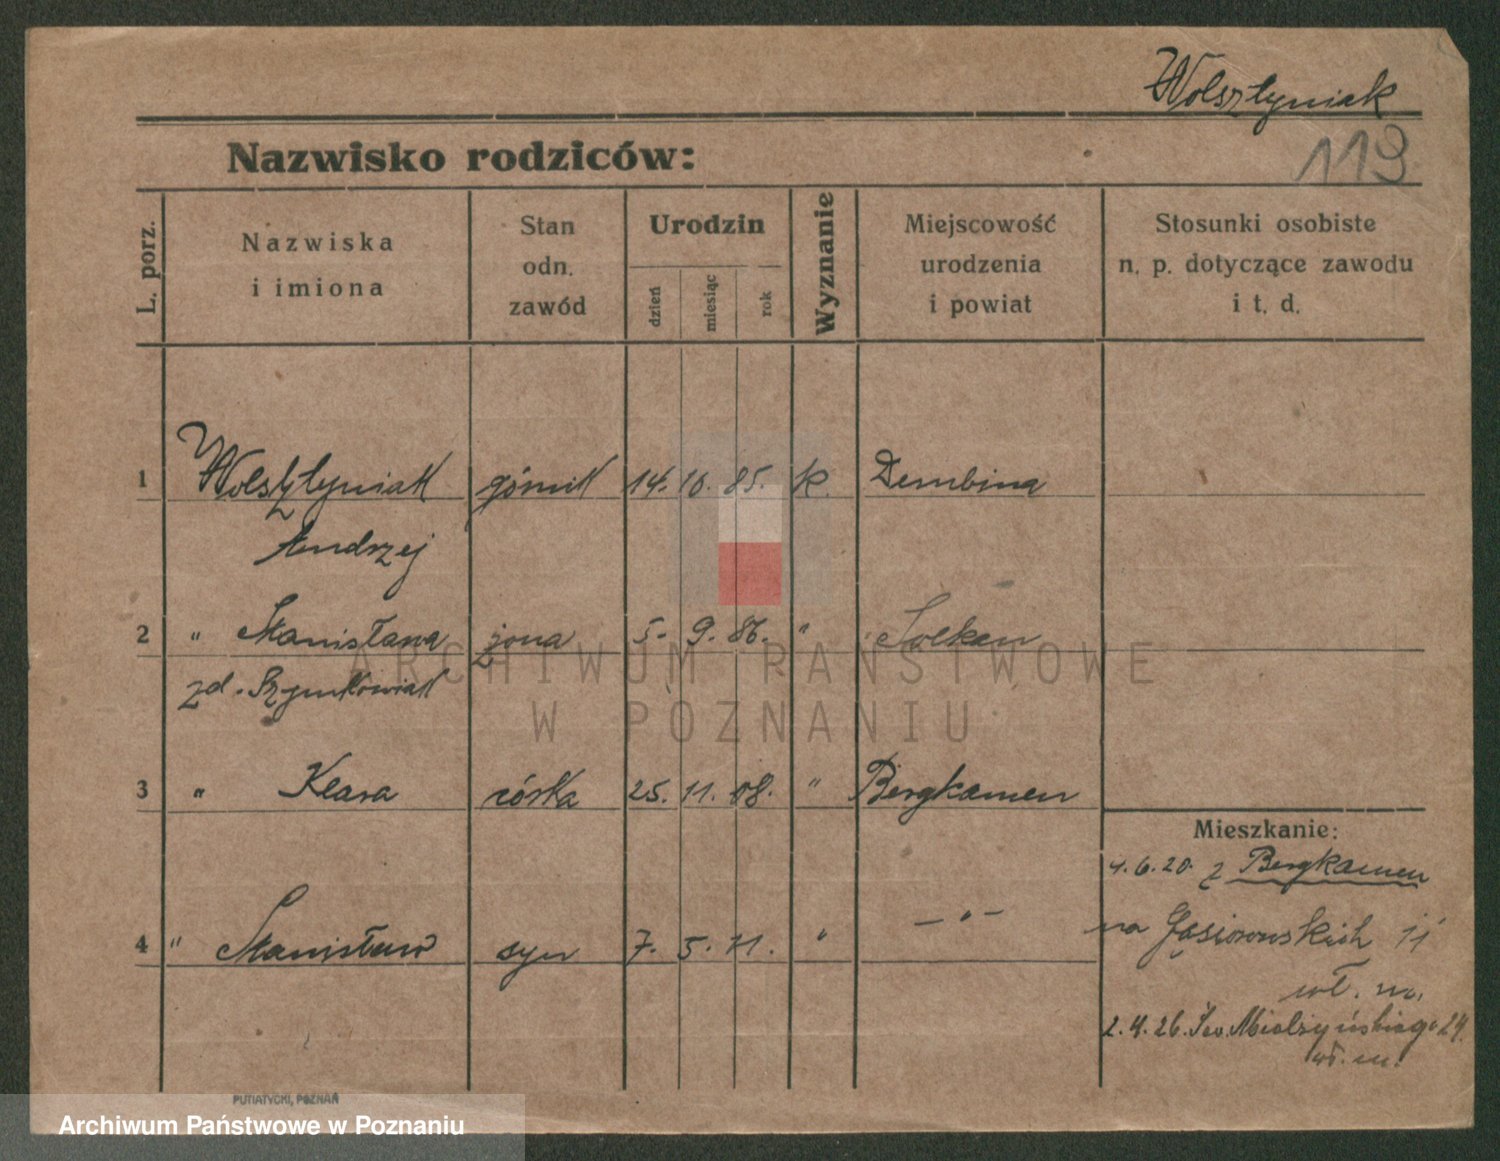 Wolsztyniak
119
Nazwisko rodziców:
L. porz.
Nazwiska
i imiona
Stan
odn.
zawód
Urodzin
dzień
miesiąc
rok
Wyznanie
Miejscowość
urodzenia
i powiat
Stosunki osobiste
n. p. dotyczące zawodu
i t. d.
1 Wolsztyniak górnik 14. 10. 85. k. Dembina
Andrzej
2 " Stanisława żona 5. 9. 86. "
zd. Szymkowiak
3 " Klara córka 25. 11. 08. " Bergkamen
Mieszkanie:
4.6.20. z Bergkamen
4 " Stanisław syn 7. 5. 11. " — " —
na Gąsiorowskich 11
wł. m.
2.4.26. Mielżyńskiego 24.
wł. m.
ARCHIWUM PAŃSTWOWE
W POZNANIU
PUTIATYCKI, POZNAŃ
Archiwum Państwowe w Poznaniu